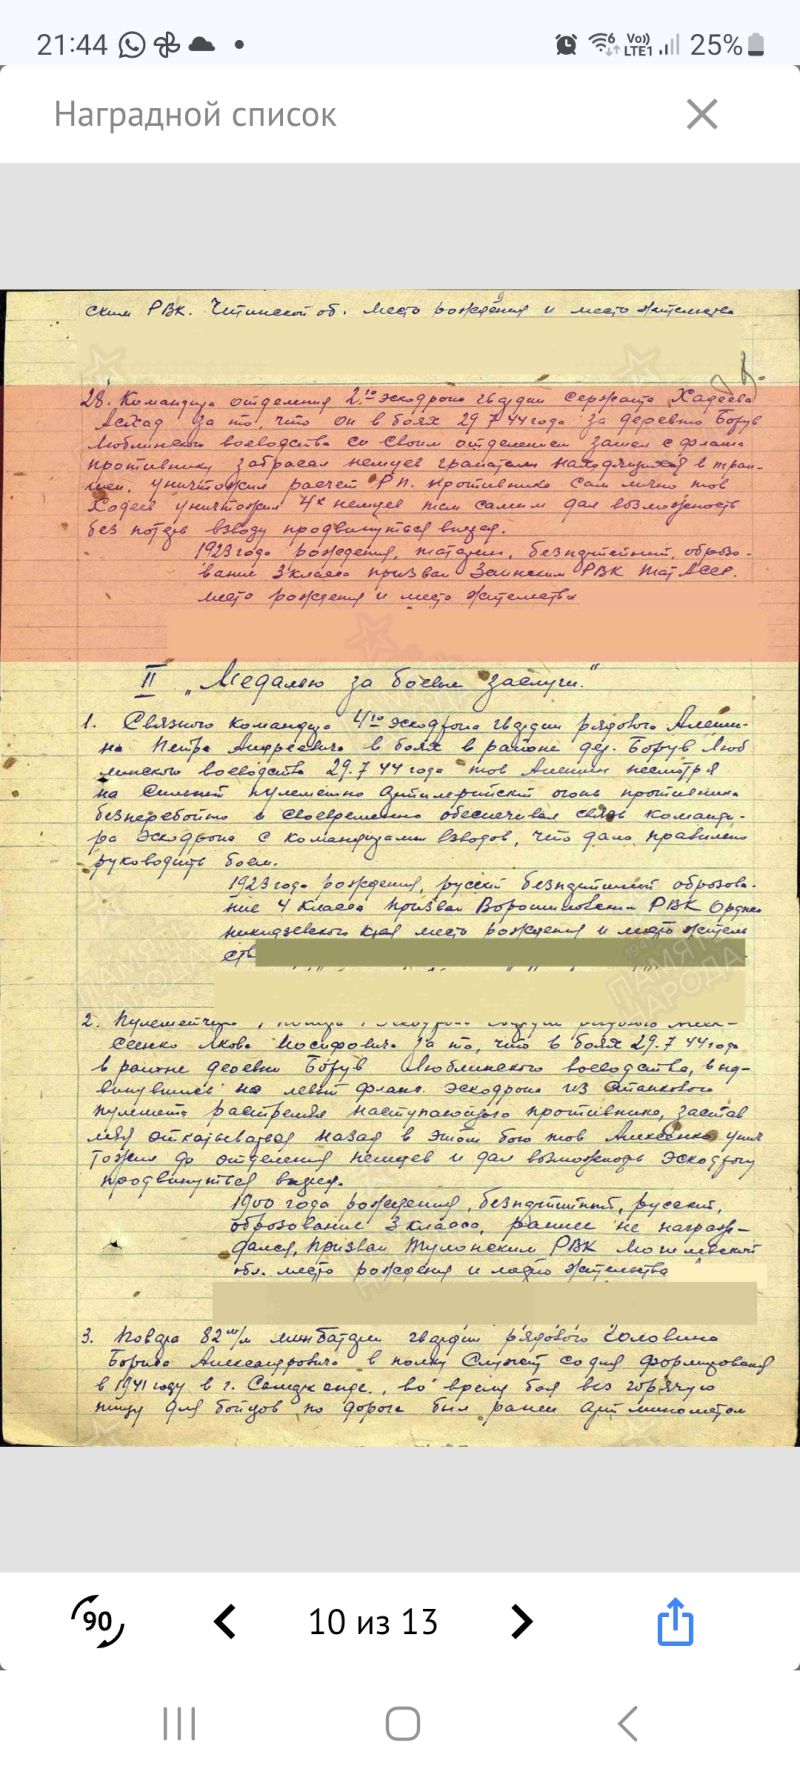 21:44
Vo))
LTE1
25%
Наградной список
ским РВК. Читинской об. место рождения и место жительства
28. Командира отделения 2го эскадрона гвардии сержанта Хадеева
Асхад за то, что он в боях 29 7 44 года за деревню Борув
Люблинского воеводства со своим отделением зашел с фланга
противнику забросал немцев гранатами находящихся в тран-
шеи, уничтожил расчет РП. противника сам лично тов
Хадеев уничтожил 4х немцев тем самым дал возможность
без потерь взводу продвинуться вперед.
1923 года рождения, татарин, беспартийный, образо-
вание 3 класса призван Заинским РВК Тат АССР.
место рождения и место жительства
II "Медалью за боевые заслуги."
1. Связного командира 4го эскадрона гвардии рядового Алеши-
на Петра Андреевича в боях в районе дер. Борув Люб
линского воеводства 29.7 44 года тов Алешин несмотря
на сильный пулеметно артилерийский огонь противника
безперебойно и своевременно обеспечивал связь команди-
ра эскадрона с командирами взводов, что дало правильно
руководить боем.
1923 года рождения, русский беспартийный образова-
ние 4 класса призван Ворошиловским РВК Орджо
никидзевского края место рождения и место житель
ств
2.
Якова Иосифовича за то, что в боях 29.7 44 года
в районе деревни Борув Люблинского воеводства, выд-
винувшись на левый фланг эскадрона из станкового
пулемета расстрелял наступающего противника, застав
ляя откатываться назад в этом бою тов Алексеенко унич
тожил до отделения немцев и дал возможность эскадрону
продвинуться вперед.
1900 года рождения, беспартийный, русский,
образование 3 класса, ранее не награж-
дался, призван РВК Могилевской
обл. место рождения и место жительства
3. Повара 82 м/м минбатареи гвардии рядового Головина
Бориса Александровича в полку служит со дня формирования
в 1941 году в г. во время боя вез горячую
пищу для бойцов по дороге был ранен арт минометом
90
10 из 13